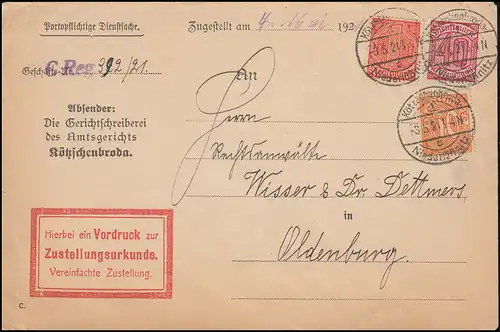 Portopflichtige Dienstsache.
Zugestellt am 4. Mai 192
Geschäfts-Nr. C Reg 392/21.
An
Absender:
Die Gerichtschreiberei
des Amtsgerichts
Kötzschenbroda.
Herren
Rechtsanwälte
Wisser & Dr. Dettmers
in
Oldenburg.
Hierbei ein Vordruck zur
Zustellungsurkunde.
Vereinfachte Zustellung.
C.